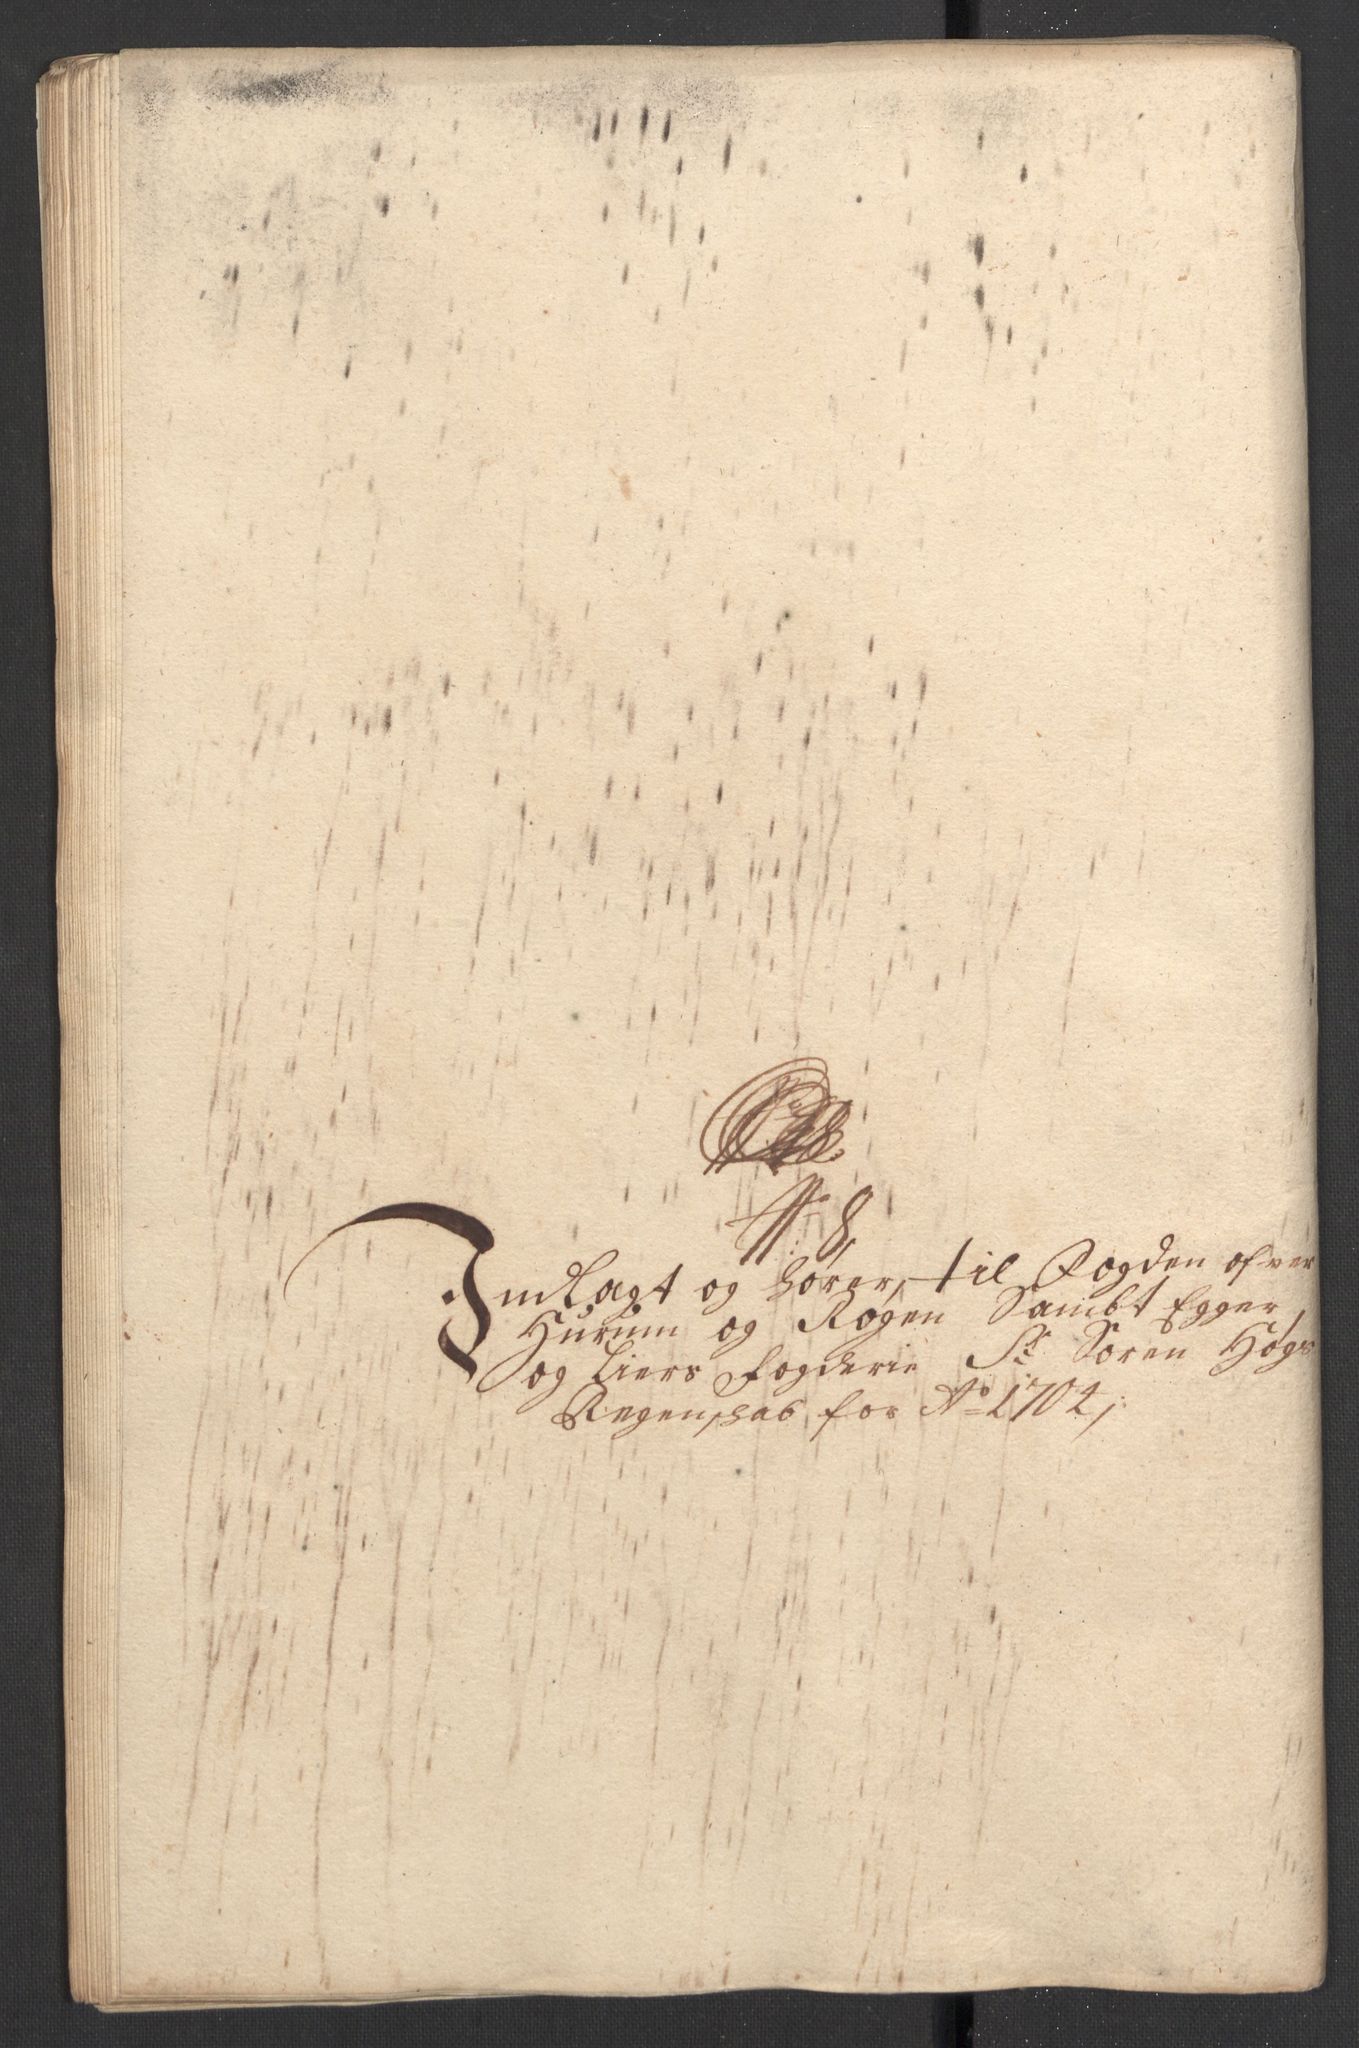 No 8,
Indlagt og hører, til Fogden ofver
Hurum og Rogen Sambt Egger,
og Liers fogderie Sr Søren Høgs
Regenskab for Ao 1704,